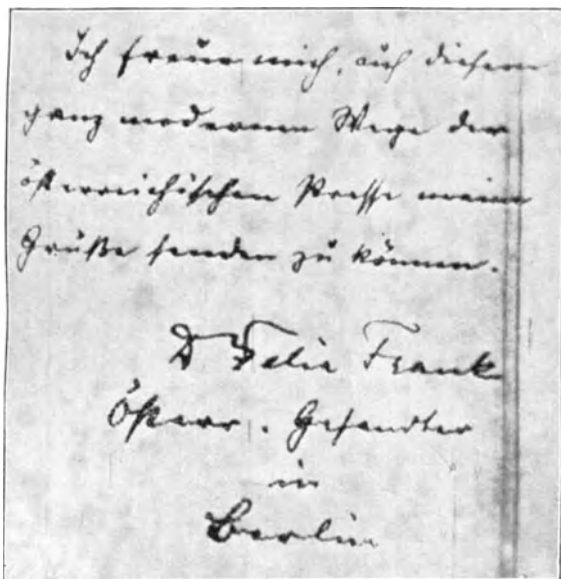 Ich freue mich, auf diesem
ganz modernen Wege der
österreichischen Presse meine
Grüße senden zu können.
Dr Felix Frank
Österr. Gesandter
in
Berlin